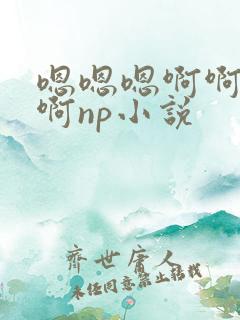 嗯嗯嗯啊啊
啊np小説
齊世庸人
未经同意禁止转载